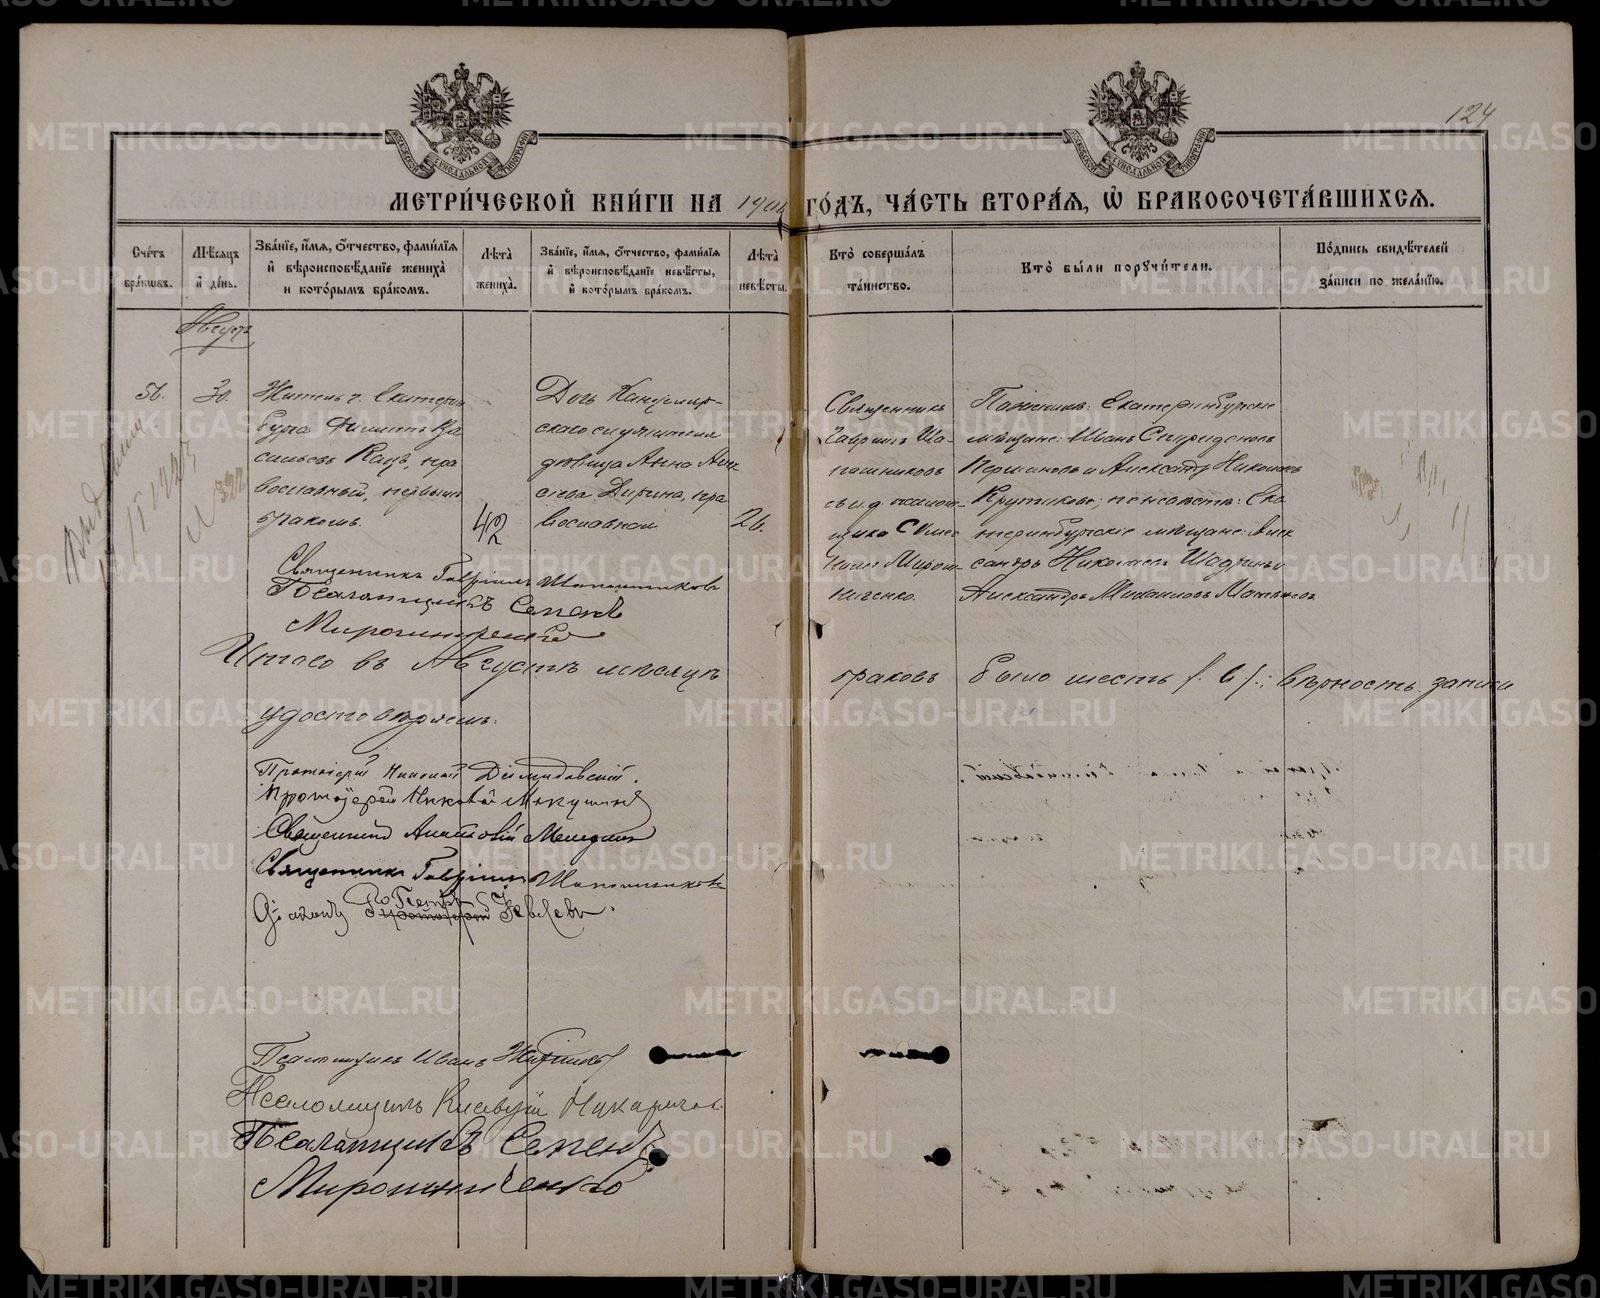 124
МЕТРИ́ЧЕСКОЙ КНИ́ГИ НА ГО́ДЪ, ЧА́СТЬ ВТОРА́Я, Ѿ БРАКОСОЧЕТА́ВШИХСЯ.
Сче́тъ бра́кѡвъ.
Мѣ́сяцъ и҆ де́нь.
Зва́нїе, и҆́мя, ѻ҆́тчество, фами́лїя и҆ вѣроисповѣ́данїе жениха̀ и кото́рымъ бра́комъ.
Лѣ́та жениха̀.
Зва́нїе, и҆́мя, ѻ҆́тчество, фами́лїя и҆ вѣроисповѣ́данїе невѣ́сты, и҆ кото́рымъ бра́комъ.
Лѣ́та невѣ́сты.
Кто̀ соверша́лъ та́инство.
Кто̀ бы́ли порꙋчи́тели.
По́дпись свидѣ́телей за́писи по жела́нїю.
Августъ
56.
30.
Житель г. Екатерин
бурга Филиппъ Ва
сильевъ Кацъ, пра
вославный, первымъ
бракомъ.
42
Дочь Канцеляр-
скаго служителя
дѣвица Анна Алек
сѣева, пра
вославной
26.
Священникъ
Гавріилъ Ша-
пошниковъ
съ и. д. псалом-
щика Симео
номъ Мирош
ниченко.
По женихѣ: Екатеринбургскіе
мѣщане: Иванъ Спиридоновъ
и Александръ Николаевъ
Крутиковъ; по невѣстѣ: Ека
теринбургскіе мѣщане: Алек
сандръ Николаевъ Шадринъ и
Александръ Михаиловъ Матвѣевъ
Священникъ Гавріилъ Шапошниковъ
Псаломщикъ Семенъ
Мирошниченко
Итого въ Августѣ мѣсяцѣ браковъ было шесть (6); вѣрность записи
удостовѣряемъ:
Протоіерей Николай
Протоіерей Николай
Священникъ Анатолій
Священникъ Гавріилъ Шапошниковъ
Діаконъ Петръ
Псаломщикъ Иванъ
Псаломщикъ
Псаломщикъ Семенъ
Мирошниченко
METRIKI.GASO-URAL.RU